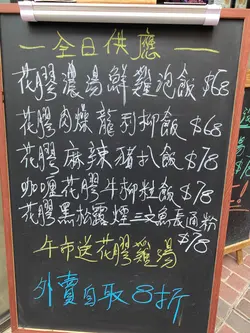 全日供應
花膠濃湯鮮雞泡飯 $68
花膠肉燥龍利柳飯 $68
花膠麻辣豬扒飯 $78
咖喱花膠牛柳粒飯 $78
花膠黑松露煙三文魚長通粉
$78
午市送花膠雞湯
外賣自取8折